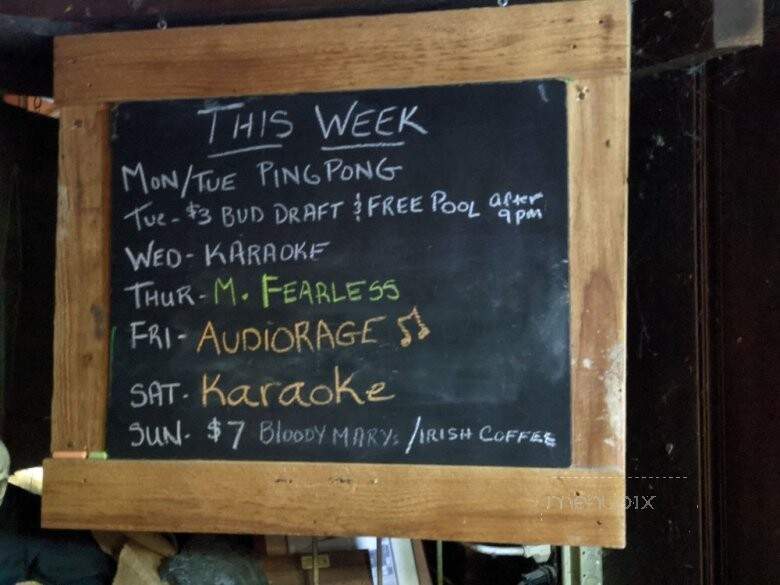 THIS WEEK
MON/TUE PING PONG
TUE - $3 BUD DRAFT & FREE POOL after 9pm
WED - KARAOKE
THUR - M. FEARLESS
FRI - AUDIORAGE
SAT - Karaoke
SUN - $7 BLOODY MARYs / IRISH COFFEE
menupix